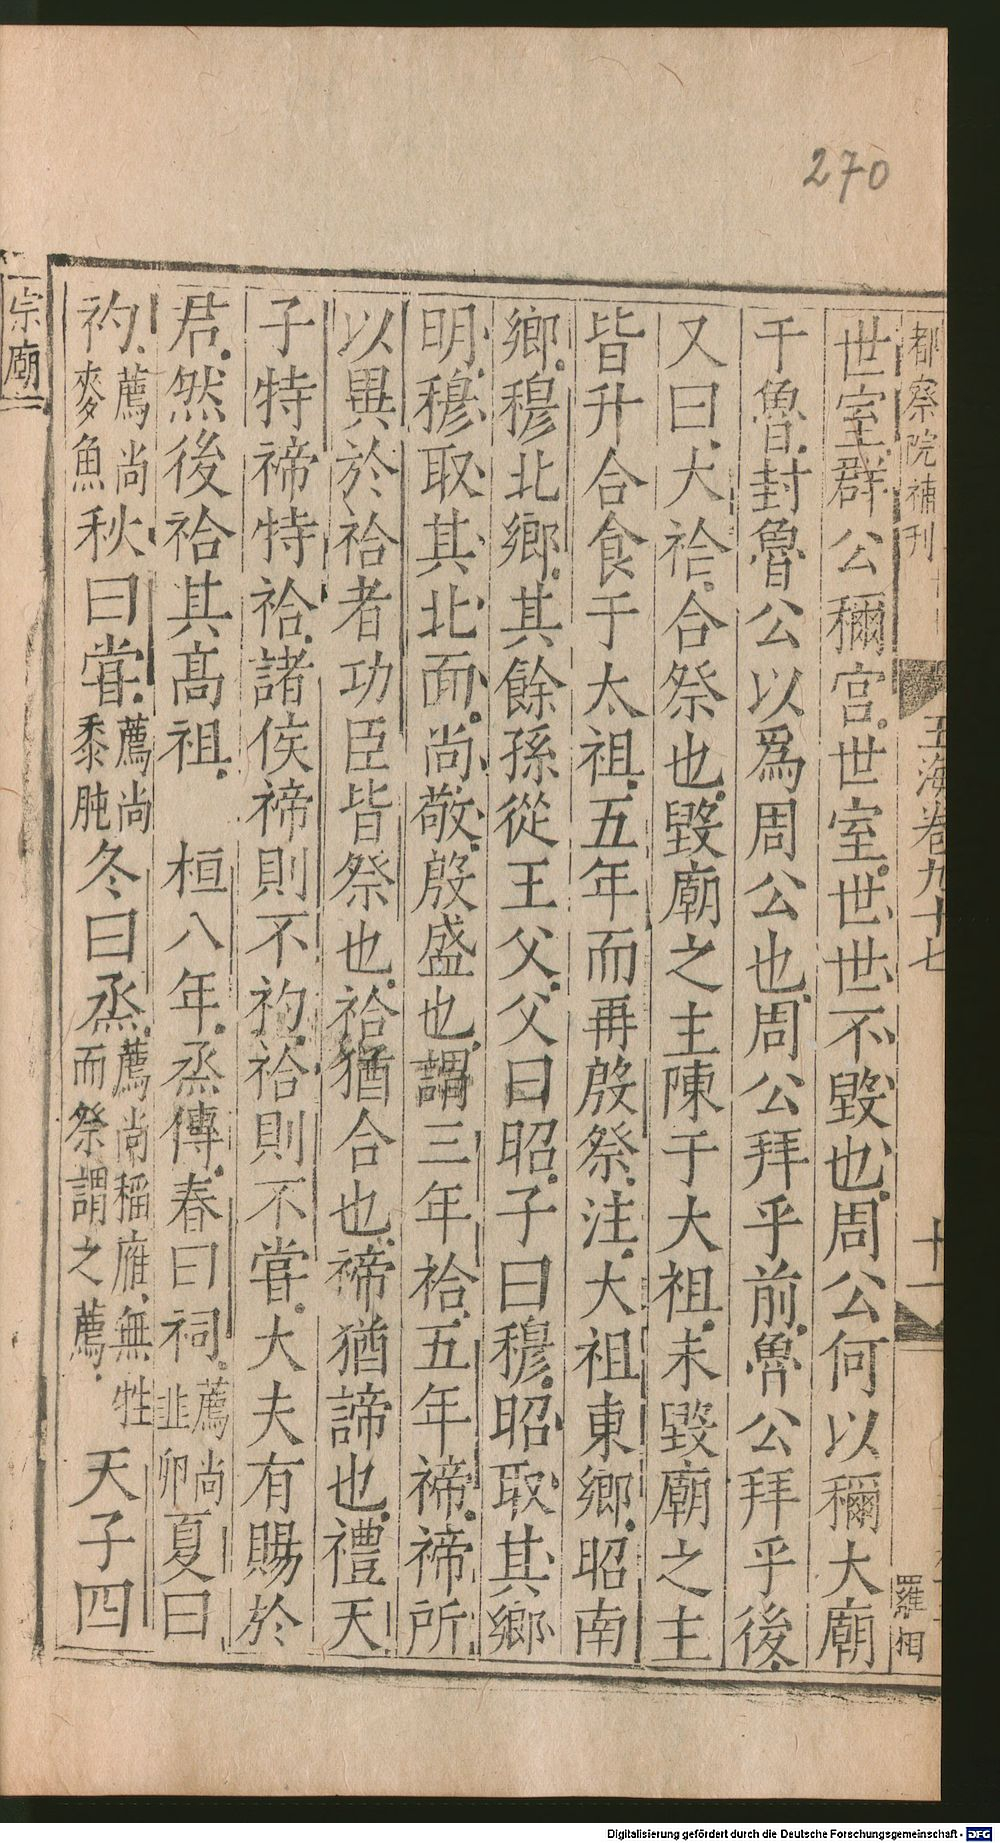 270
都察院補刊
玉海卷九十七
十一
羅相
世室群公稱宮世室世世不毀也周公何以稱大廟
于魯封魯公以爲周公也周公拜乎前魯公拜乎後
又曰大祫合祭也毀廟之主陳于大祖未毀廟之主
皆升合食于太祖五年而再殷祭注大祖東鄉昭南
鄉穆北鄉其餘孫從王父父曰昭子曰穆昭取其鄉
明穆取其北面尚敬殷盛也謂三年祫五年禘禘所
以異於祫者功臣皆祭也祫猶合也禘猶諦也禮天
子特禘特祫諸侯禘則不礿祫則不嘗大夫有賜於
君然後祫其髙祖 桓八年烝傳春曰祠薦尚韭卵夏曰
礿薦尚麥魚秋曰嘗薦尚黍肫冬曰烝薦尚稻鴈無牲而祭謂之薦天子四
宗廟
Digitalisierung gefördert durch die Deutsche Forschungsgemeinschaft - DFG